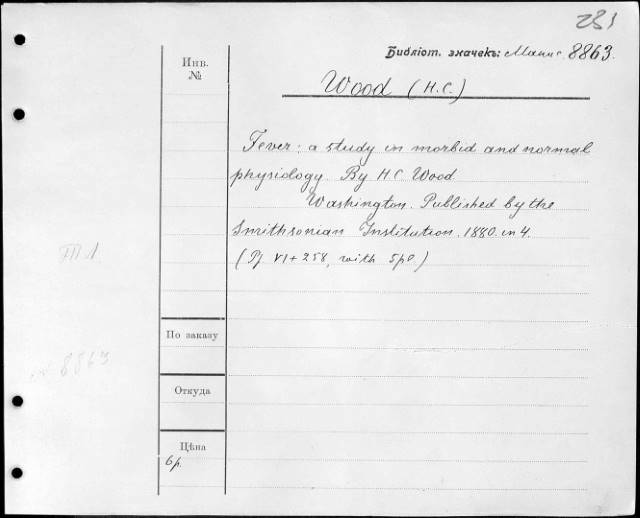 231
Инв.
№
Библіот. значекъ: Манис. 8863.
Wood (H.C.)
Fever: a study in morbid and normal
physiology. By H C Wood
Washington. Published by the
Smithsonian Institution. 1880. in 4.
(Pp VI + 258, with 5 pl.)
III 1.
8863
По заказу
Откуда
Цѣна
6 р.